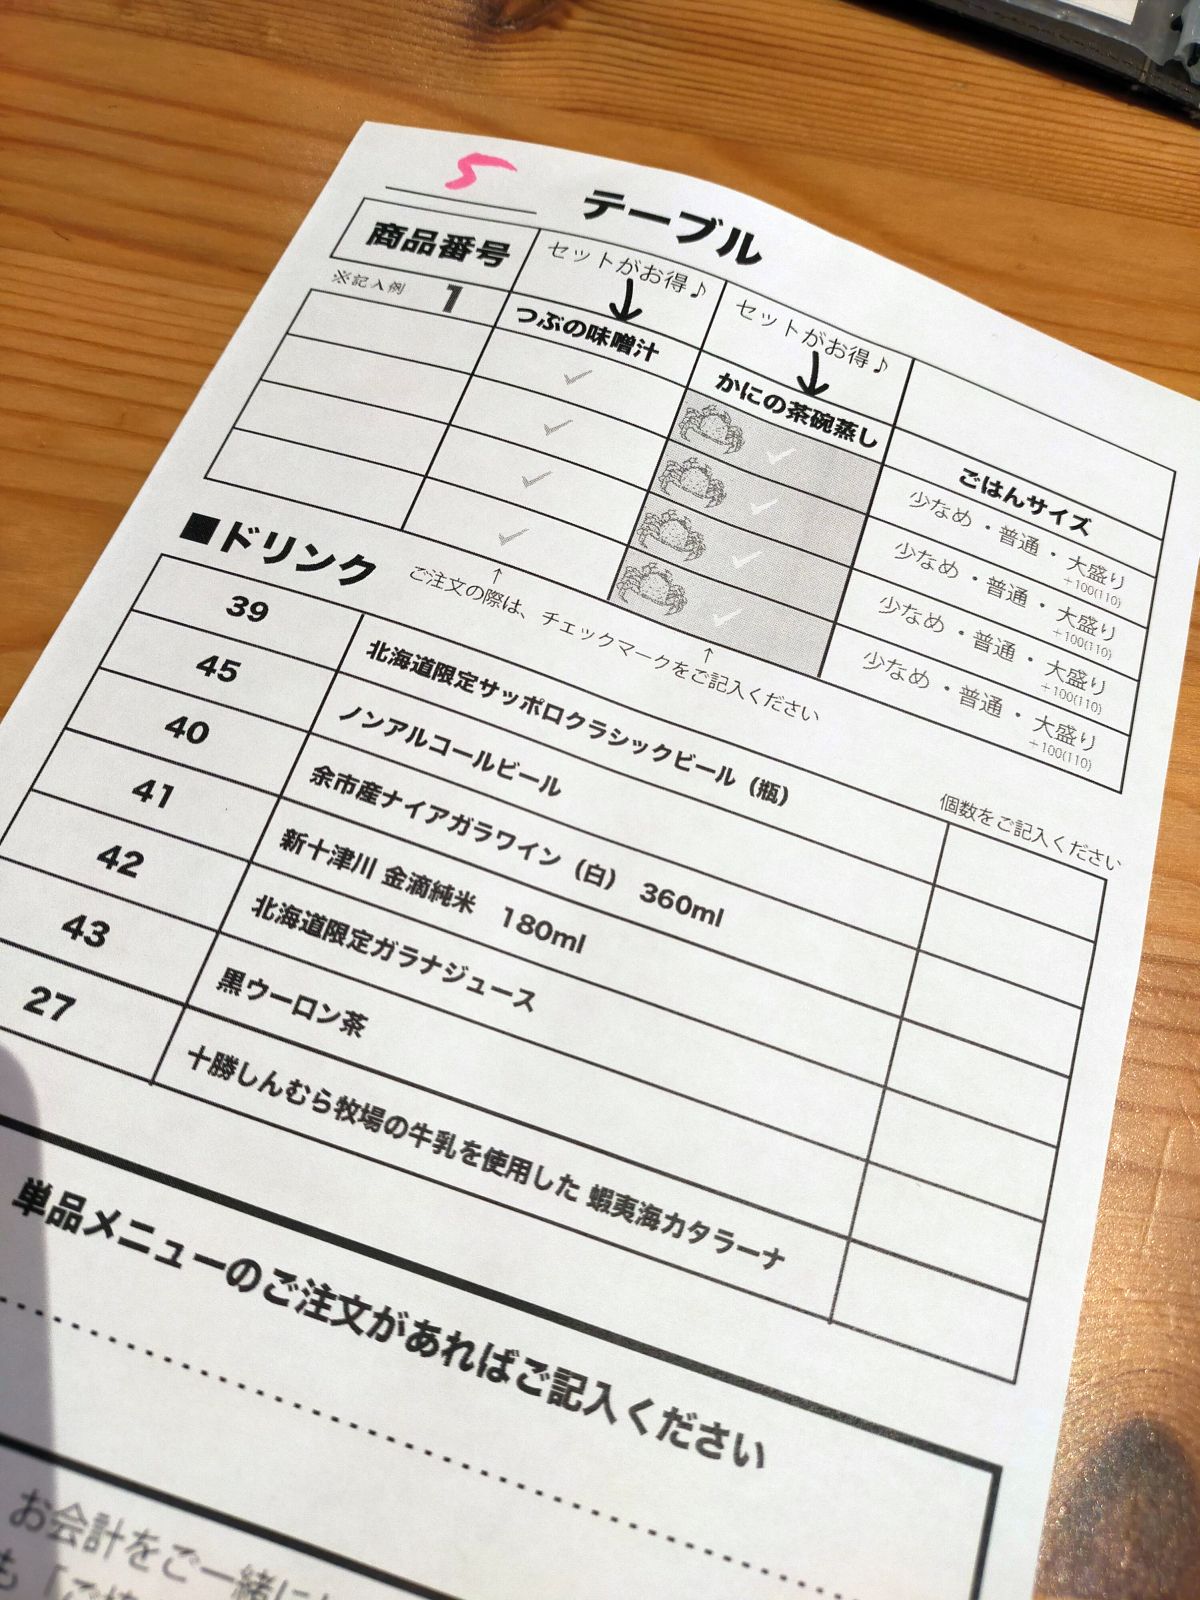 5 テーブル
商品番号 セットがお得♪ セットがお得♪
※記入例 1 つぶの味噌汁 かにの茶碗蒸し ごはんサイズ
少なめ・普通・大盛り
+100(110)
少なめ・普通・大盛り
+100(110)
少なめ・普通・大盛り
+100(110)
少なめ・普通・大盛り
+100(110)
↑ ↑
ご注文の際は、チェックマークをご記入ください
■ドリンク
個数をご記入ください
39 北海道限定サッポロクラシックビール（瓶）
45 ノンアルコールビール
40 余市産ナイアガラワイン（白） 360ml
41 新十津川 金滴純米 180ml
42 北海道限定ガラナジュース
43 黒ウーロン茶
27 十勝しんむら牧場の牛乳を使用した 蝦夷海カタラーナ
単品メニューのご注文があればご記入ください
お会計をご一緒に
も「ご